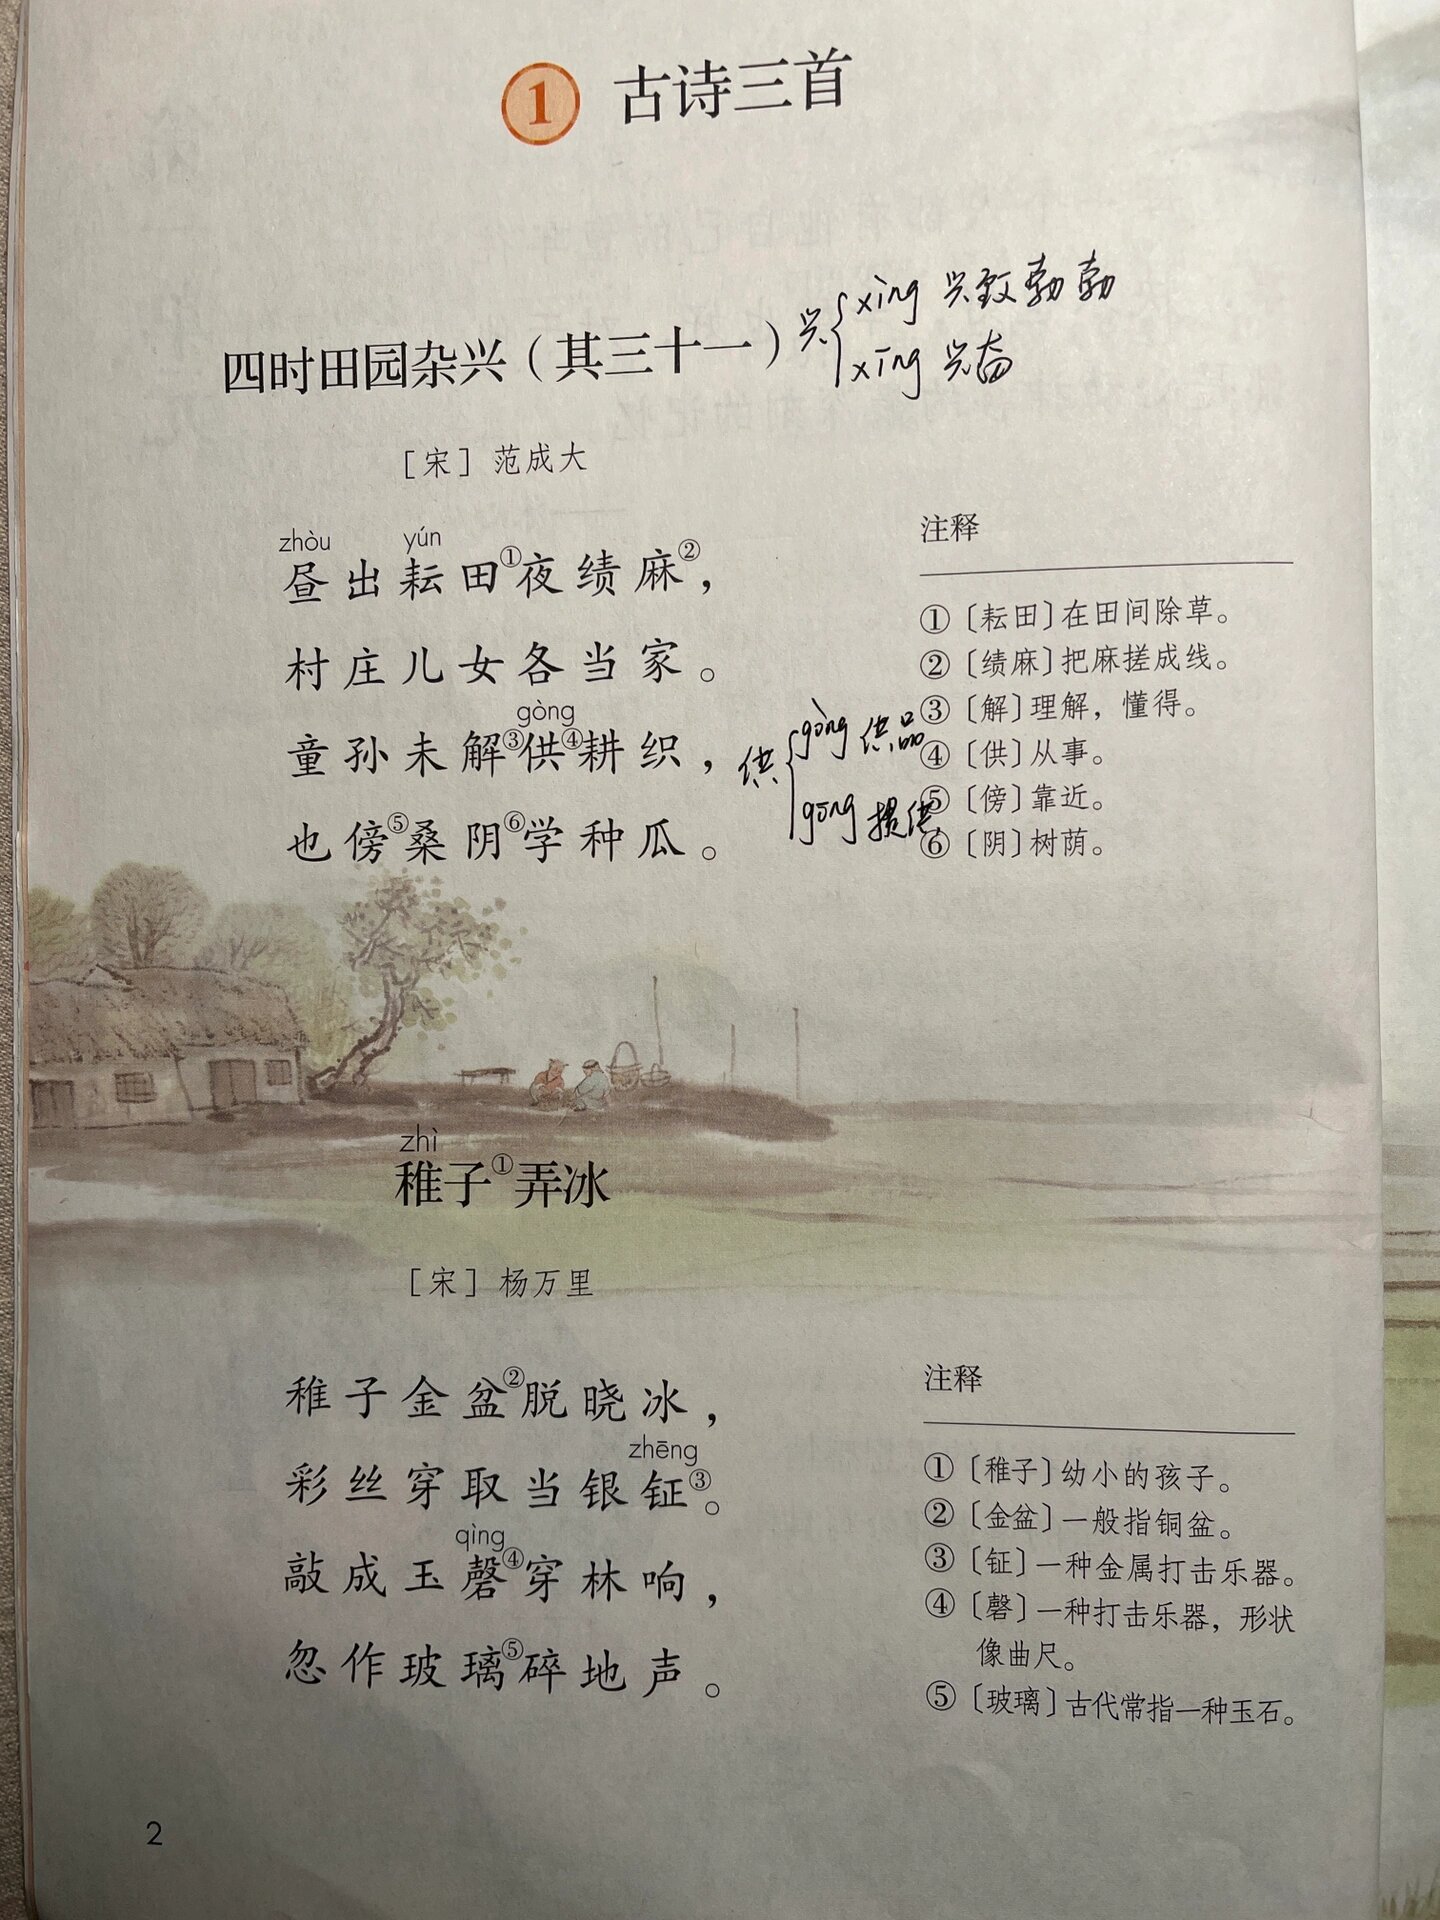 1 古诗三首
四时田园杂兴（其三十一）
兴 xìng 兴致勃勃
xīng 兴奋
［宋］范成大
zhòu yún
昼出耘田①夜绩麻②，
村庄儿女各当家。
gòng
童孙未解③供④耕织，
也傍⑤桑阴⑥学种瓜。
供 gòng 供品
gōng 提供
注释
①〔耘田〕在田间除草。
②〔绩麻〕把麻搓成线。
③〔解〕理解，懂得。
④〔供〕从事。
⑤〔傍〕靠近。
⑥〔阴〕树荫。
zhì
稚子①弄冰
［宋］杨万里
稚子金盆②脱晓冰，
zhēng
彩丝穿取当银钲③。
qìng
敲成玉磬④穿林响，
忽作玻璃⑤碎地声。
注释
①〔稚子〕幼小的孩子。
②〔金盆〕一般指铜盆。
③〔钲〕一种金属打击乐器。
④〔磬〕一种打击乐器，形状
像曲尺。
⑤〔玻璃〕古代常指一种玉石。
2